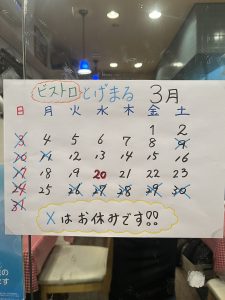 ビストロとげまる 3月
日 月 火 水 木 金 土
1 2
3 4 5 6 7 8 9
10 11 12 13 14 15 16
17 18 19 20 21 22 23
24 25 26 27 28 29 30
31
×はお休みです!!